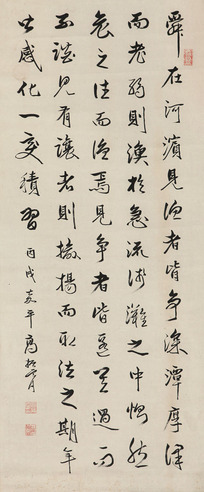 舜在河濱見漁者皆爭深潭厚澤
而老弱則漁於急流淺灘之中惻然
哀之往而漁焉見爭者皆匿其過而
不談見有讓者則揄揚而取法之期年
感化一變積習
丙戌嘉平